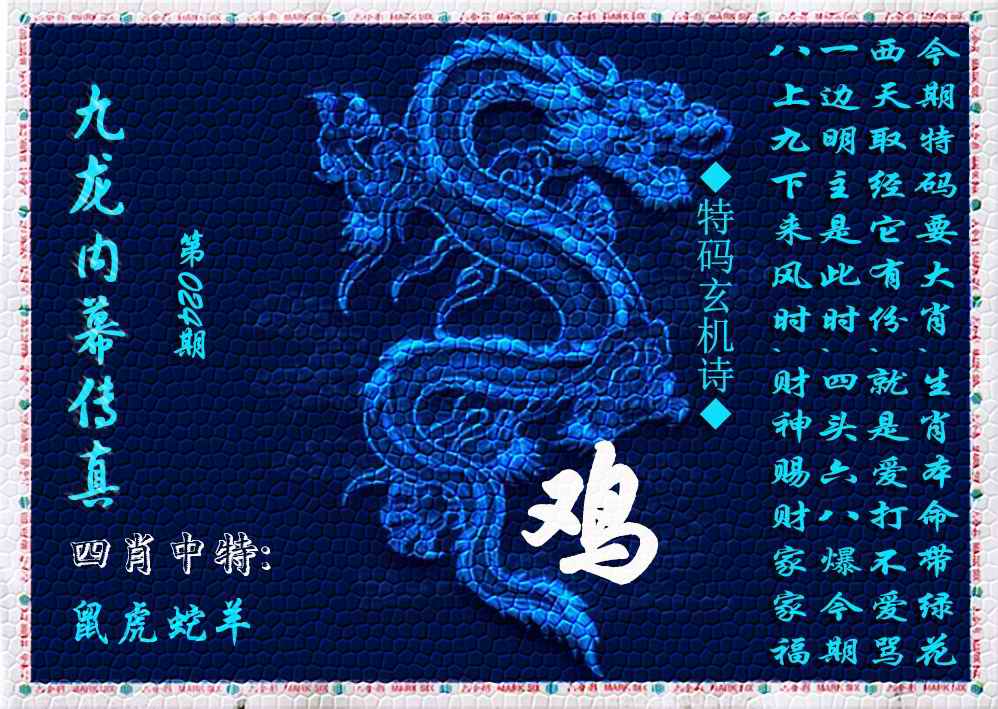 今期特码要大肖、生肖本命带绿花
西天取经它有份、就是爱打不爱骂
一边明主是此时、四头六八爆今期
八上九下来风时、财神赐财家家福
◆特码玄机诗◆
九龙内幕传真
第024期
鸡
四肖中特:
鼠虎蛇羊